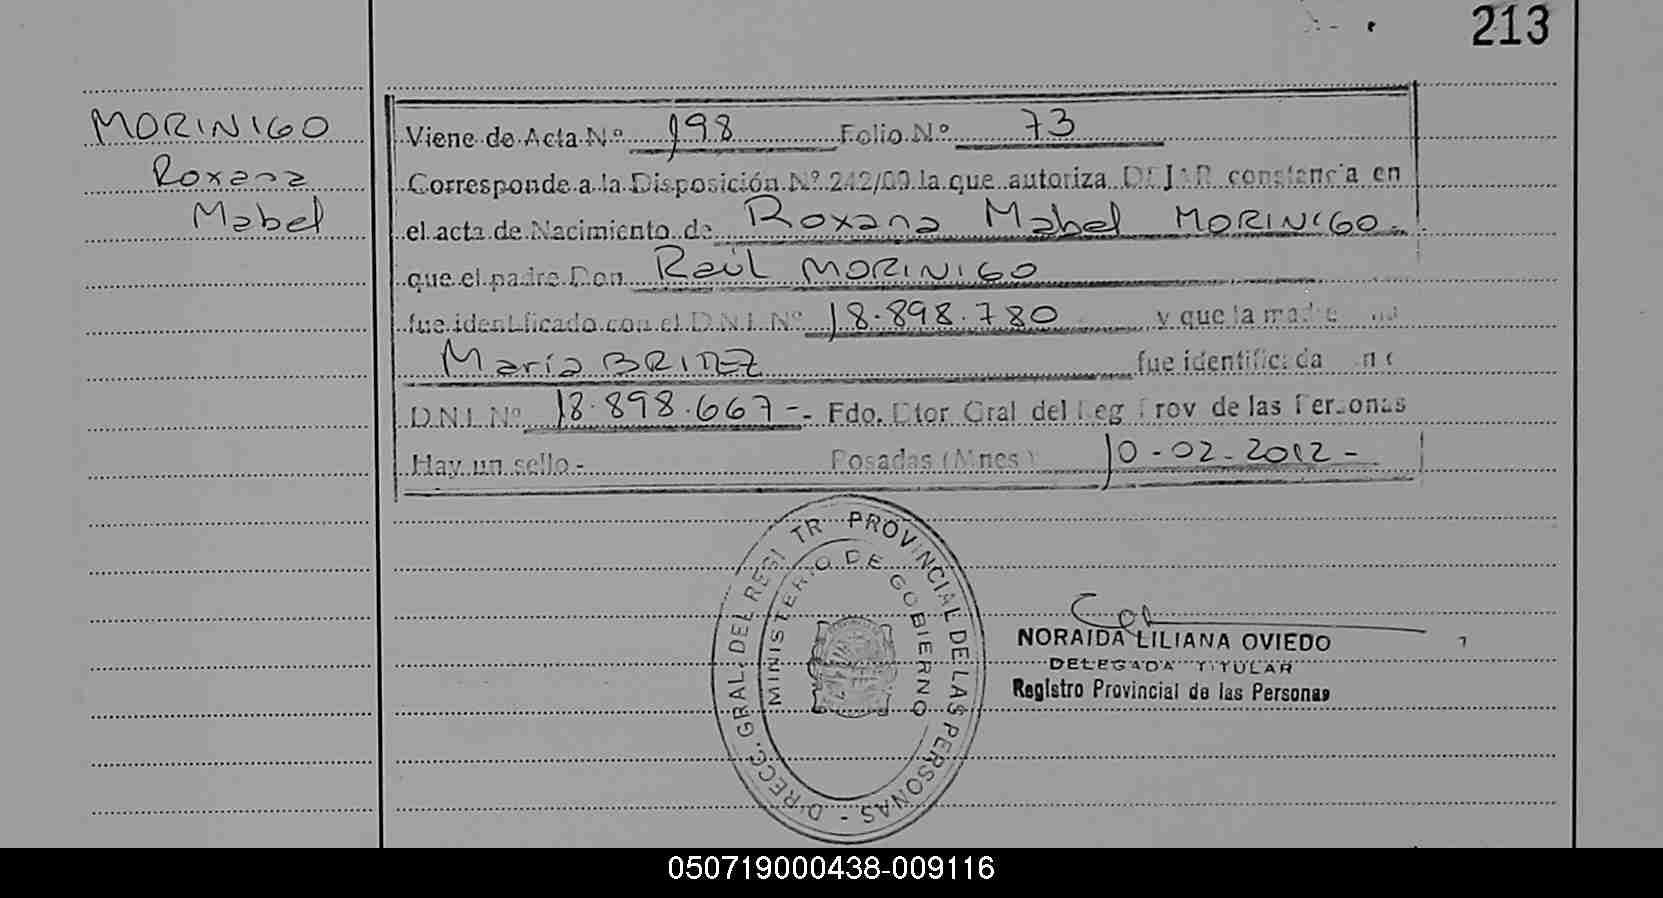 213
MORINIGO
Roxana
Mabel
Viene de Acta Nº 198 Folio Nº 73
Corresponde a la Disposición Nº 242/09 la que autoriza DEJAR constancia en
el acta de Nacimiento de Roxana Mabel MORINIGO.-
que el padre Don Raúl MORINIGO
fue identificado con el D.N.I. Nº 18.898.780 y que la madre
María BRITEZ fue identificada
D.N.I. Nº 18.898.667-. Fdo. Dtor Gral del Reg Prov de las Personas
Hay un sello.- Posadas (Mnes) 10-02-2012-
DIRECC. GRAL. DEL REGI TR PROVINCIAL DE LAS PERSONAS -
MINISTERIO DE GOBIERNO
NORAIDA LILIANA OVIEDO
DELEGADA TITULAR
Registro Provincial de las Personas
050719000438-009116